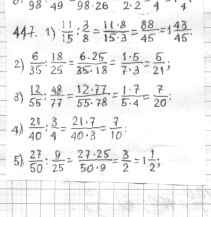 98 49 98·26 2·2 4 4
447. 1) 11/15 : 3/8 = 11·8/15·3 = 88/45 = 1 43/45
2) 6/35 : 18/25 = 6·25/35·18 = 1·5/7·3 = 5/21;
3) 12/55 : 48/77 = 12·77/55·78 = 1·7/5·4 = 7/20;
4) 21/40 : 3/4 = 21·7/40·3 = 7/10;
5) 27/50 : 9/25 = 27·25/50·9 = 3/2 = 1 1/2;